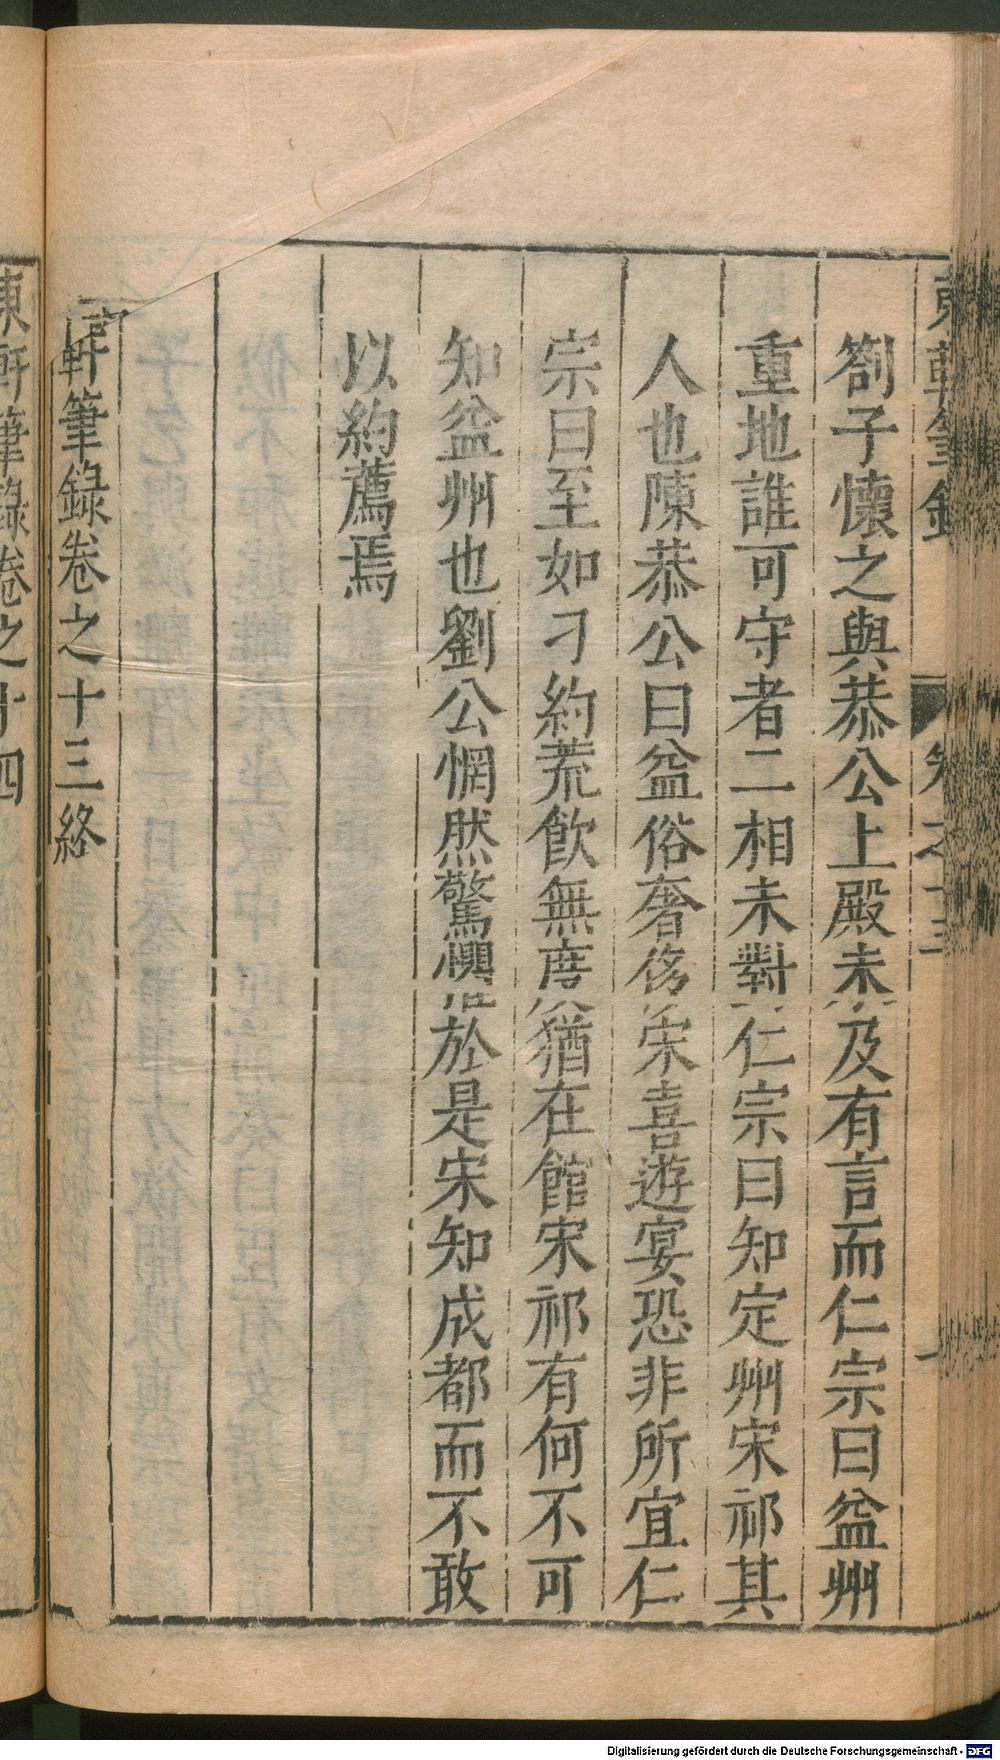 東軒筆錄 卷之十三
劄子懷之與恭公上殿未及有言而仁宗曰益州
重地誰可守者二相未對仁宗曰知定州宋祁其
人也陳恭公曰益俗奢侈宋喜遊宴恐非所宜仁
宗曰至如刁約荒飲無度猶在館宋祁有何不可
知益州也劉公惘然驚懼於是宋知成都而不敢
以約薦焉
軒筆錄卷之十三終
東軒筆錄卷之十四
Digitalisierung gefördert durch die Deutsche Forschungsgemeinschaft - DFG